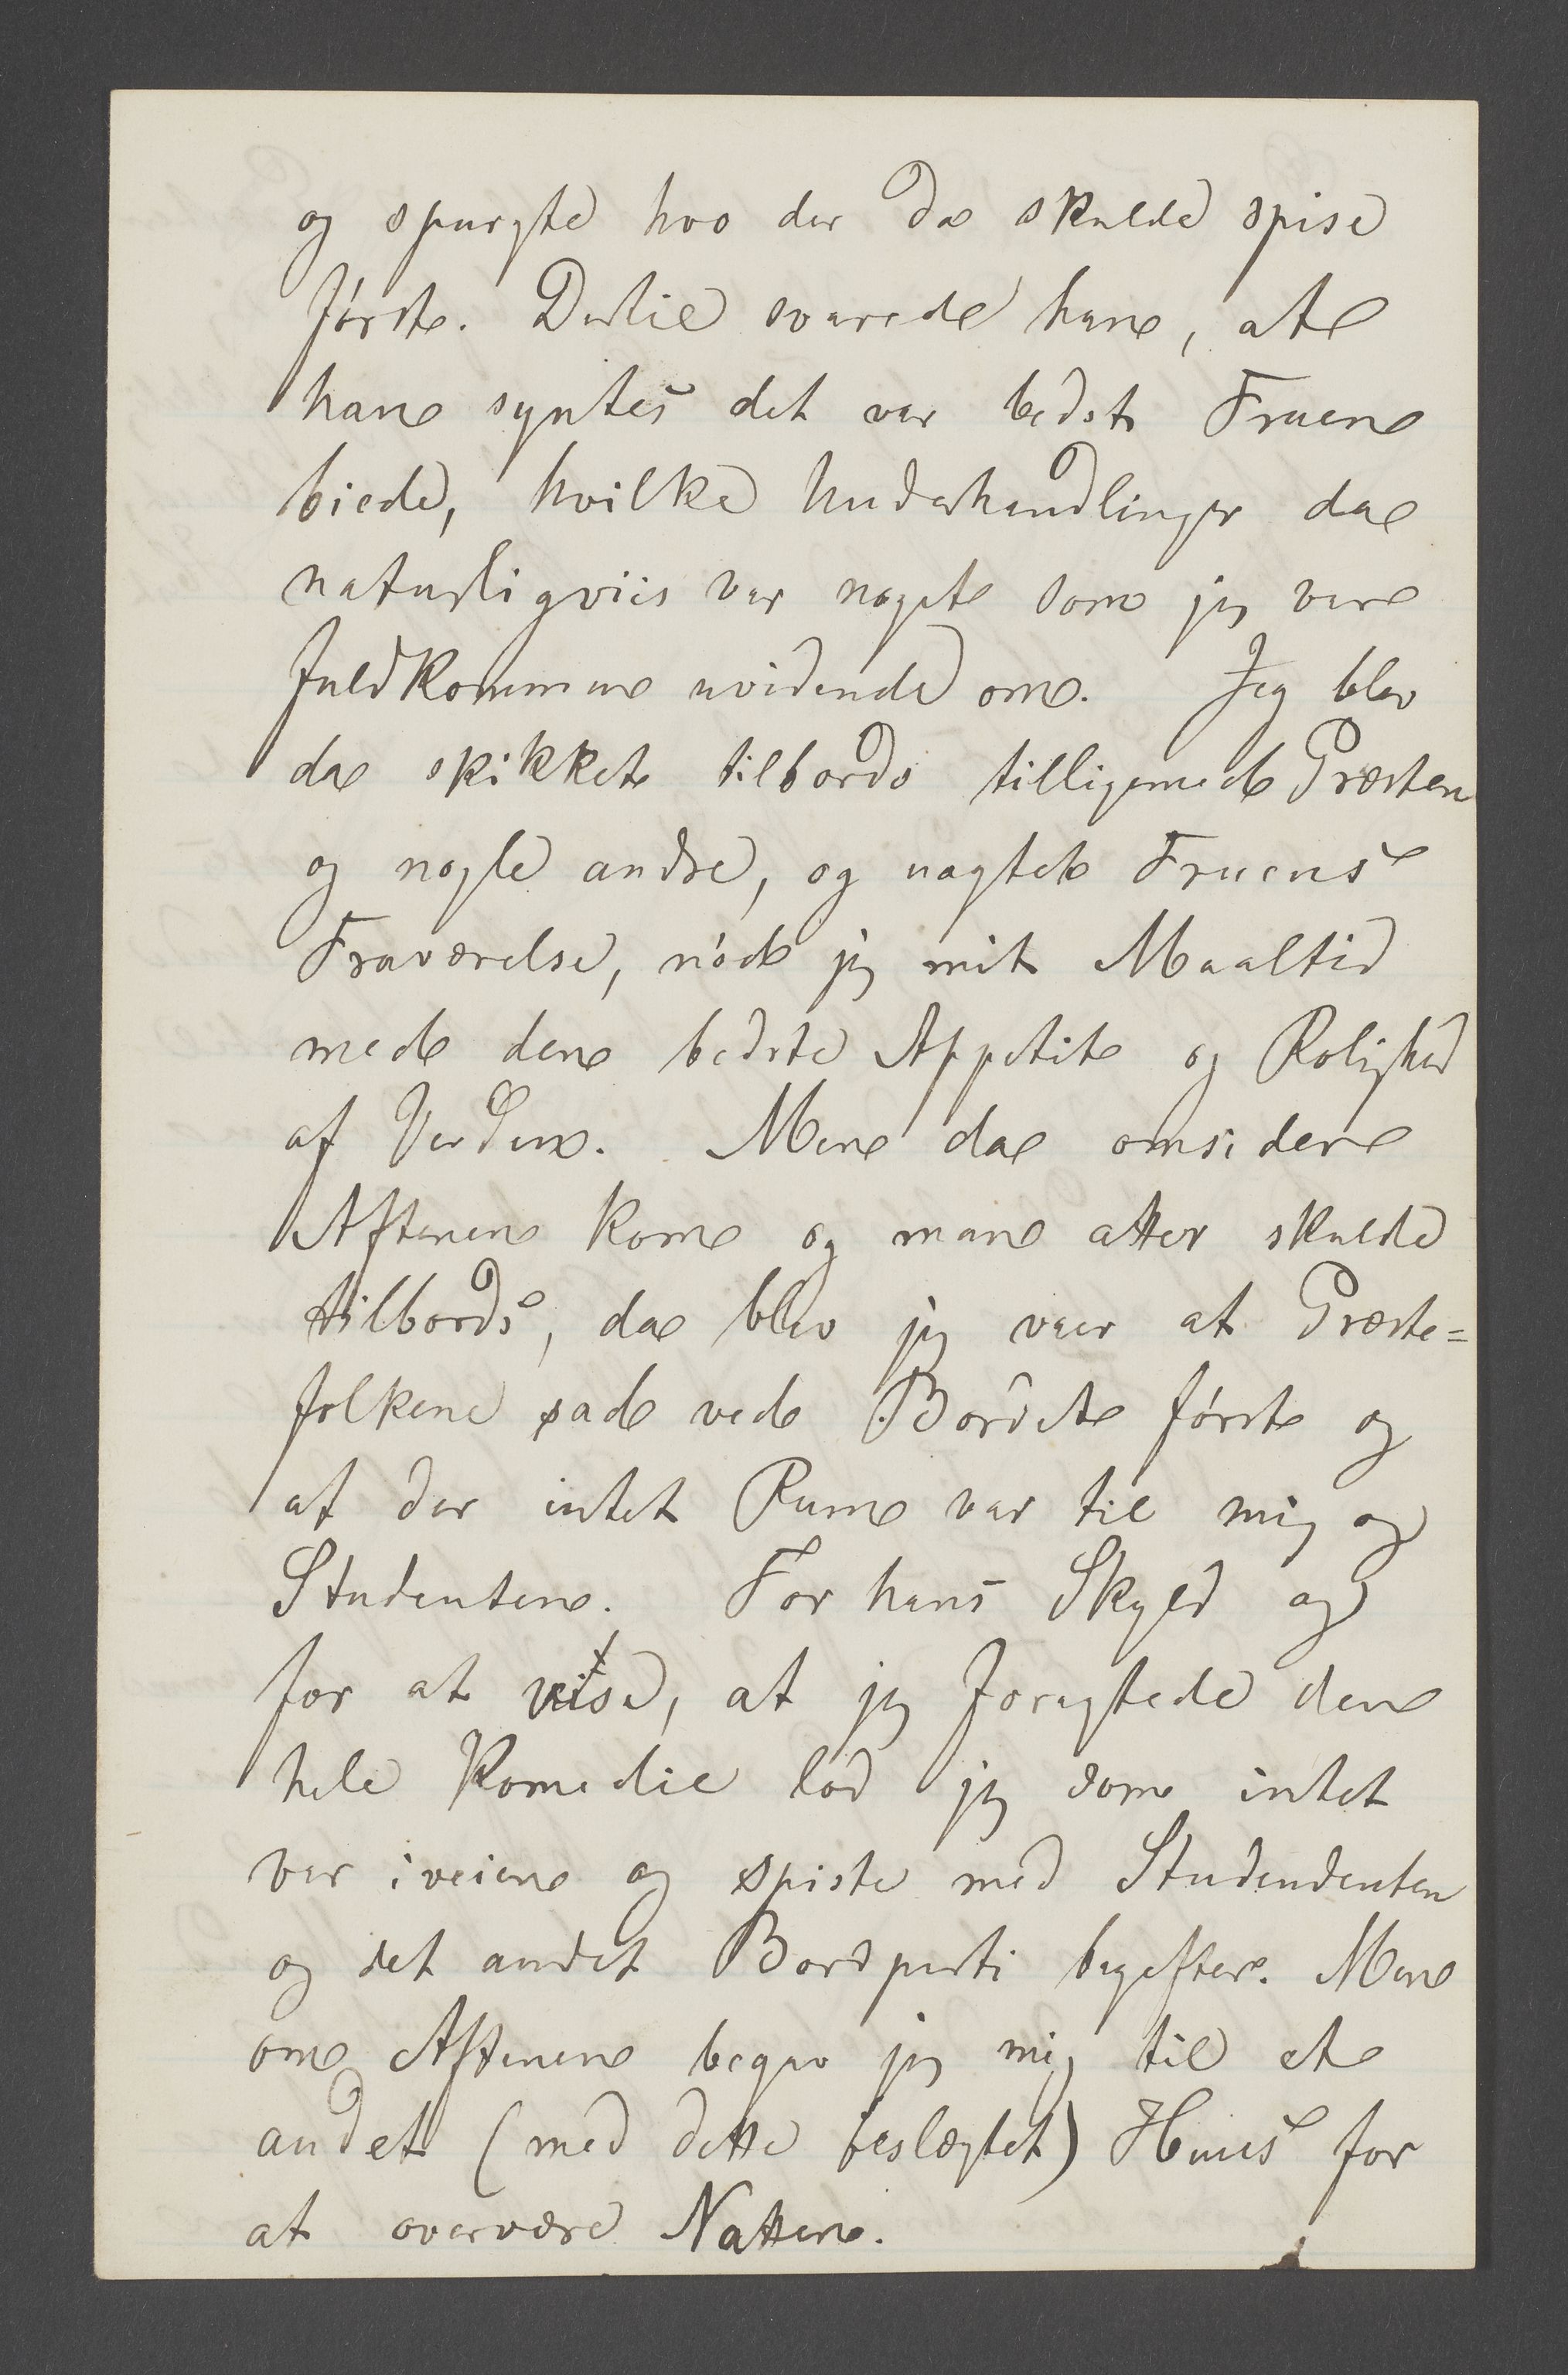 og spurgte hvo der da skulde spise
først. Dertil svarede han, at
han syntes det var bedst Fruen
biede, hvilke Underhandlinger da
naturligviis var noget som jeg var
fuldkommen uvidende om. Jeg blev
da skikket tilbords tilligemed Præsten
og nogle andre, og uagtet Fruens
Fraværelse, nød jeg mit Maaltid
med den bedste Appetit og Rolighed
af Verden. Men da omsider
Aftenen kom og man atter skulde
tilbords, da blev jeg vaer at Præste=
folkene sad ved Bordet først og
at der intet Rum var til mig og
Studenten. For hans Skyld og
for at vise, at jeg foragtede den
hele Komedie lod jeg som intet
var iveien og spiste med Studendenten
og det andet Bordparti bagefter. Men
om Aftenen begav jeg mig til et
andet (med dette beslægtet) Huus for
at overvære Natten.